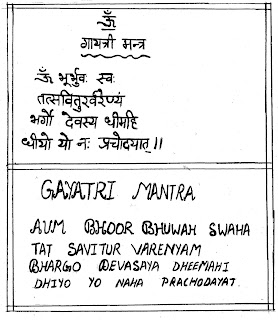 ॐ
गायत्री मन्त्र
ॐ भूर्भुवः स्वः
तत्सवितुर्वरेण्यं
भर्गो देवस्य धीमहि
धीयो यो नः प्रचोदयात्॥
GAYATRI MANTRA
AUM BHOOR BHUWAH SWAHA
TAT SAVITUR VARENYAM
BHARGO DEVASAYA DHEEMAHI
DHIYO YO NAHA PRACHODAYAT.